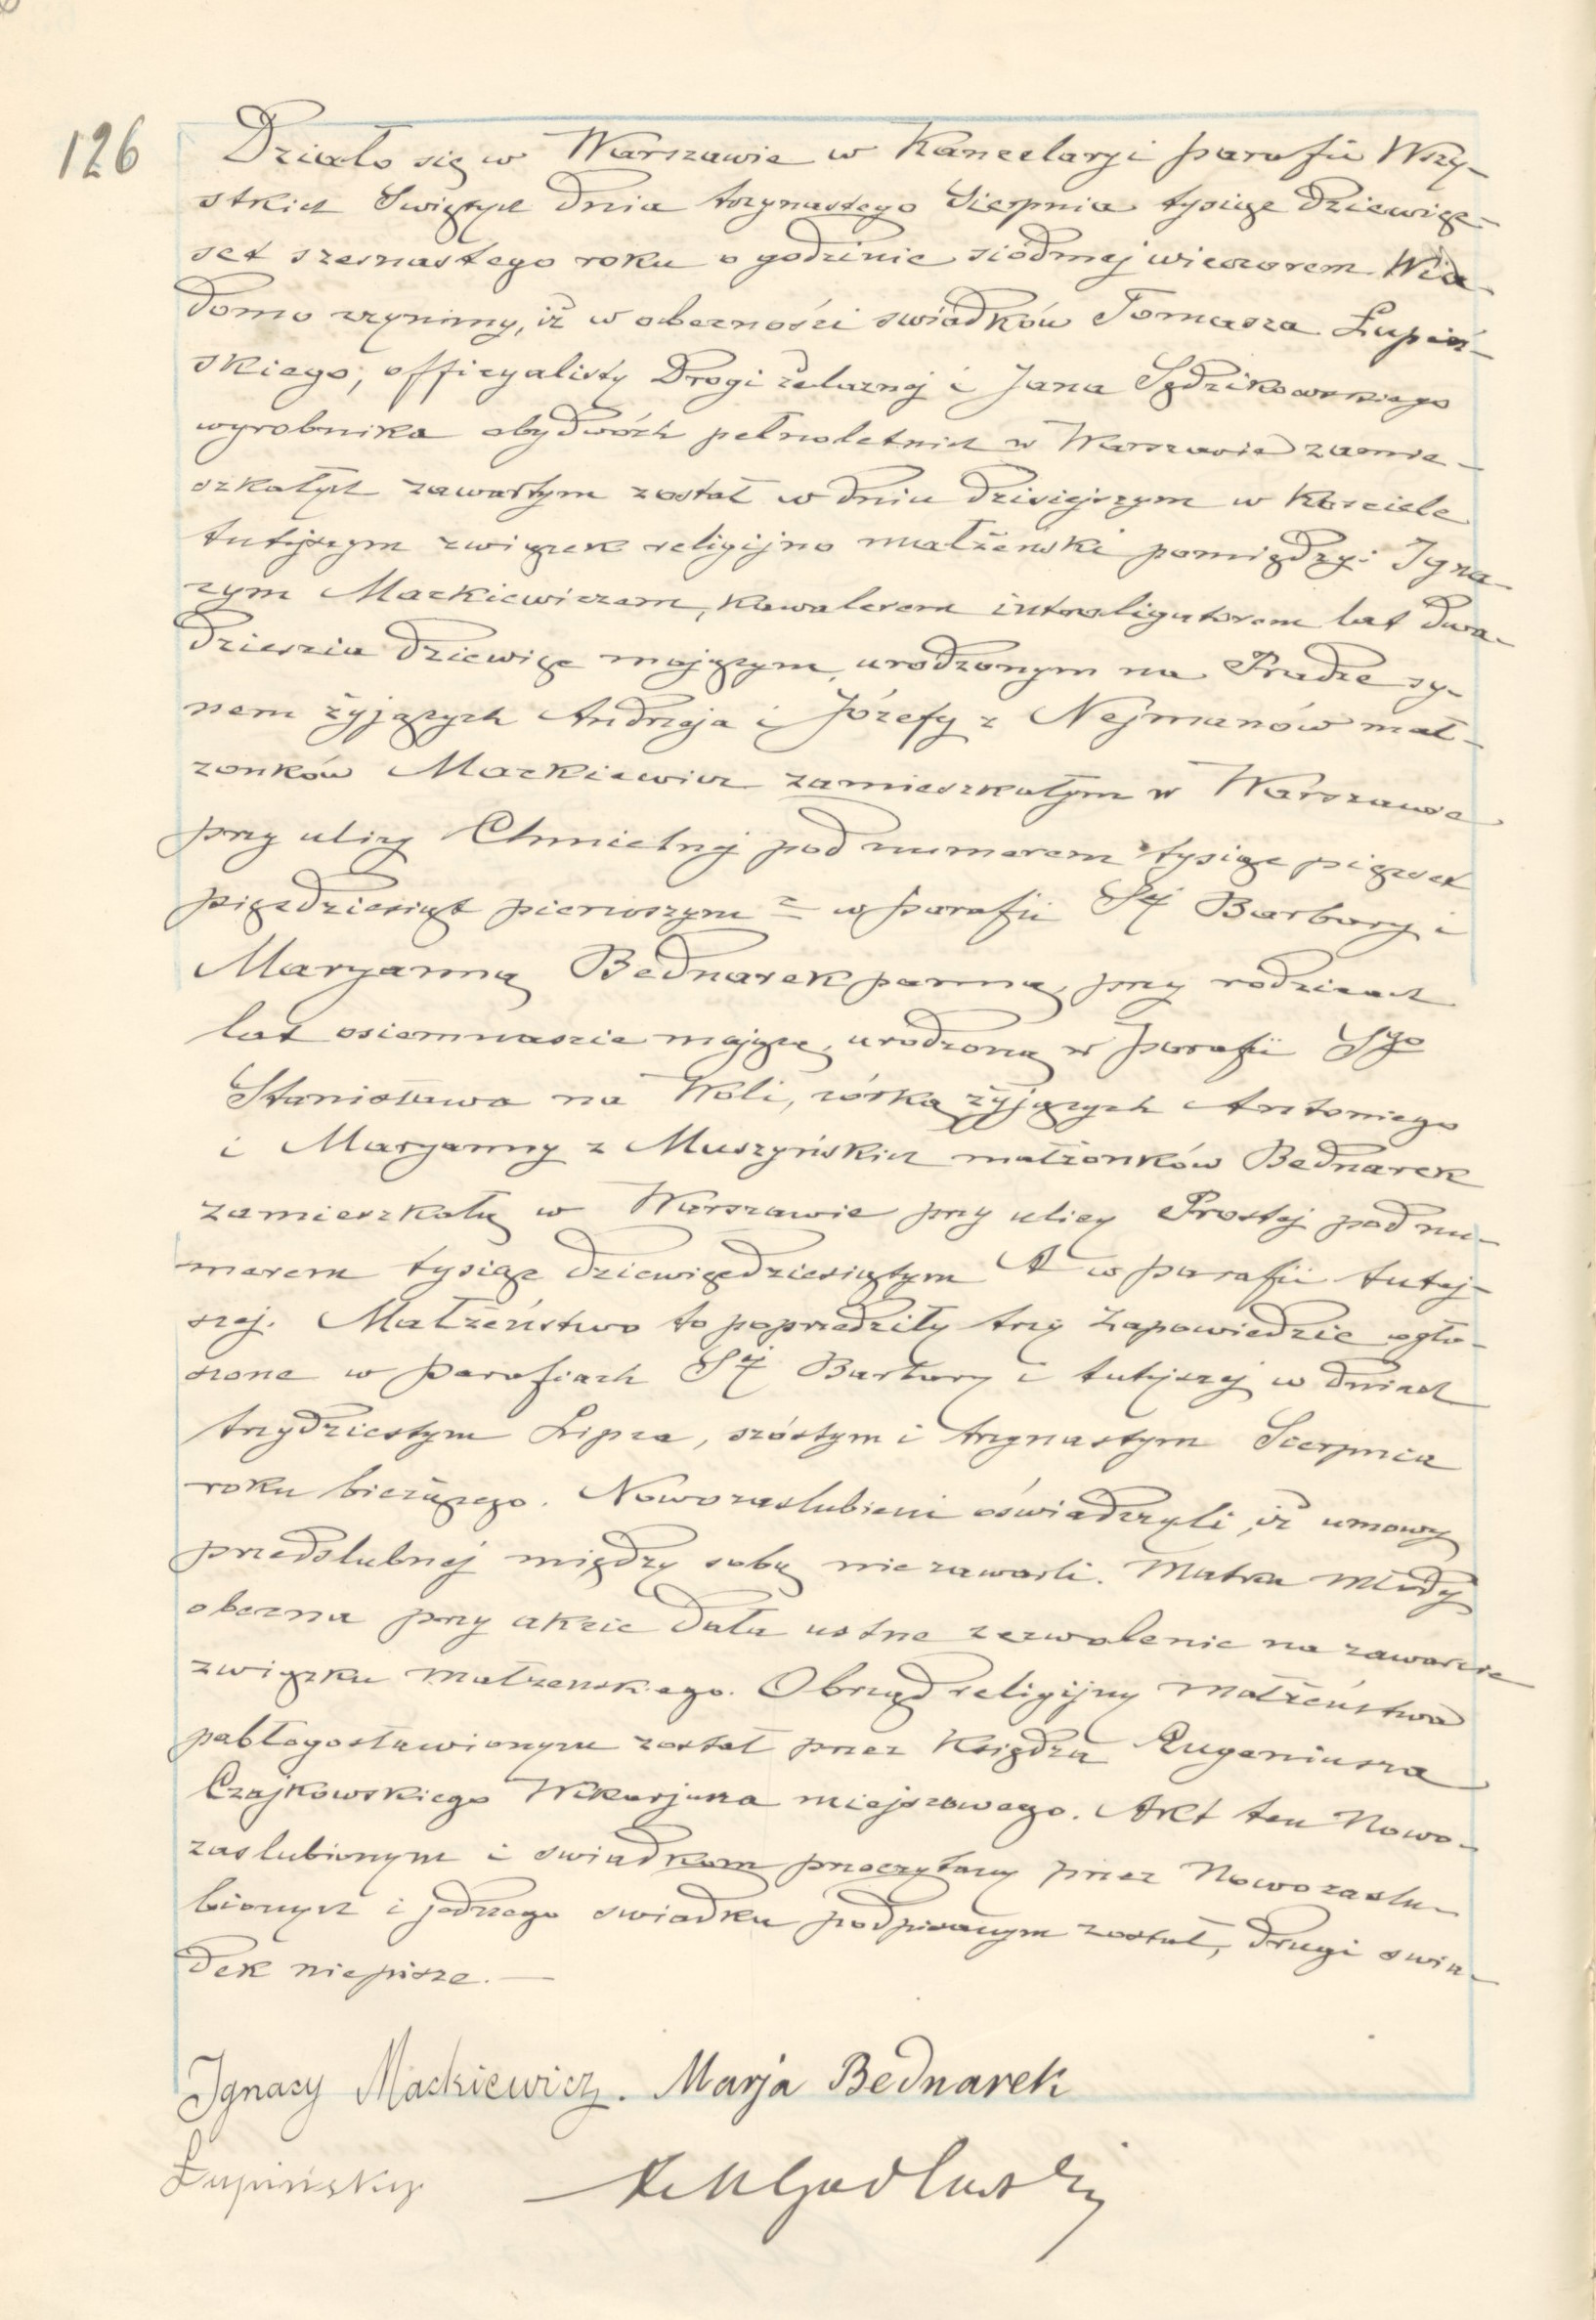 126
Działo się w Warszawie w Kancelarji parafii Wszy-
stkich Swiętych dnia trzynastego Sierpnia tysiąc dziewięc-
set szesnastego roku o godzinie siódmej wieczorem. Wia-
domo czynimy, iż w obecności swiadków Tomasza Łupiń-
skiego, officyalisty Drogi żelaznej i Jana Sędzikowskiego
wyrobnika obydwóch pełnoletnich w Warszawie zamie-
szkałych zawartym został w dniu dzisiejszym w Kosciele
tutejszym związek religijno małżeński pomiędzy: Igna-
cym Mackiewiczem, kawalerem introligatorem lat dwa-
dzieścia dziewięc mającym, urodzonym na Pradze sy-
nem żyjących Andrzeja i Józefy z Nejmanów mał-
zonków Mackiewicz zamieszkałym w Warszawie
przy ulicy Chmielnej pod numerem tysiąc pięcset
pięcdziesiąt pierwszym w parafii Sej Barbary i
Maryanną Bednarek panną, przy rodzicach
lat osiemnascie mającą, urodzoną w parafii Sgo
Stanisława na Woli, córką żyjących Antoniego
i Maryanny z Muszyńskich małżonków Bednarek
zamieszkałą w Warszawie przy ulicy Prostej pod nu-
merem tysiąc dziewięcdziesiątym A w parafii tutej-
szej. Małżeństwo to poprzedziły trzy zapowiedzie ogło-
szone w parafiach Sej Barbary i tutejszej w dniach
trzydziestym Lipca, szóstym i trzynastym Sierpnia
roku bieżącego. Nowozaslubieni oświadczyli, iż umowy
przedslubnej między sobą nie zawarli. Matka Młodej
obecna przy akcie dała ustne zezwolenie na zawarcie
związku małzenskiego. Obrząd religijny małżeństwa
pobłogosławionym został przez Księdza Eugeniusza
Czajkowskiego Wikarjusza miejscowego. Akt ten Nowo-
zaslubionym i swiadkom przeczytany przez Nowozaslu-
bionych i jednego swiadka podpisanym został, drugi swia-
dek niepisze. —
Ignacy Mackiewicz. Marja Bednarek
Łupiński